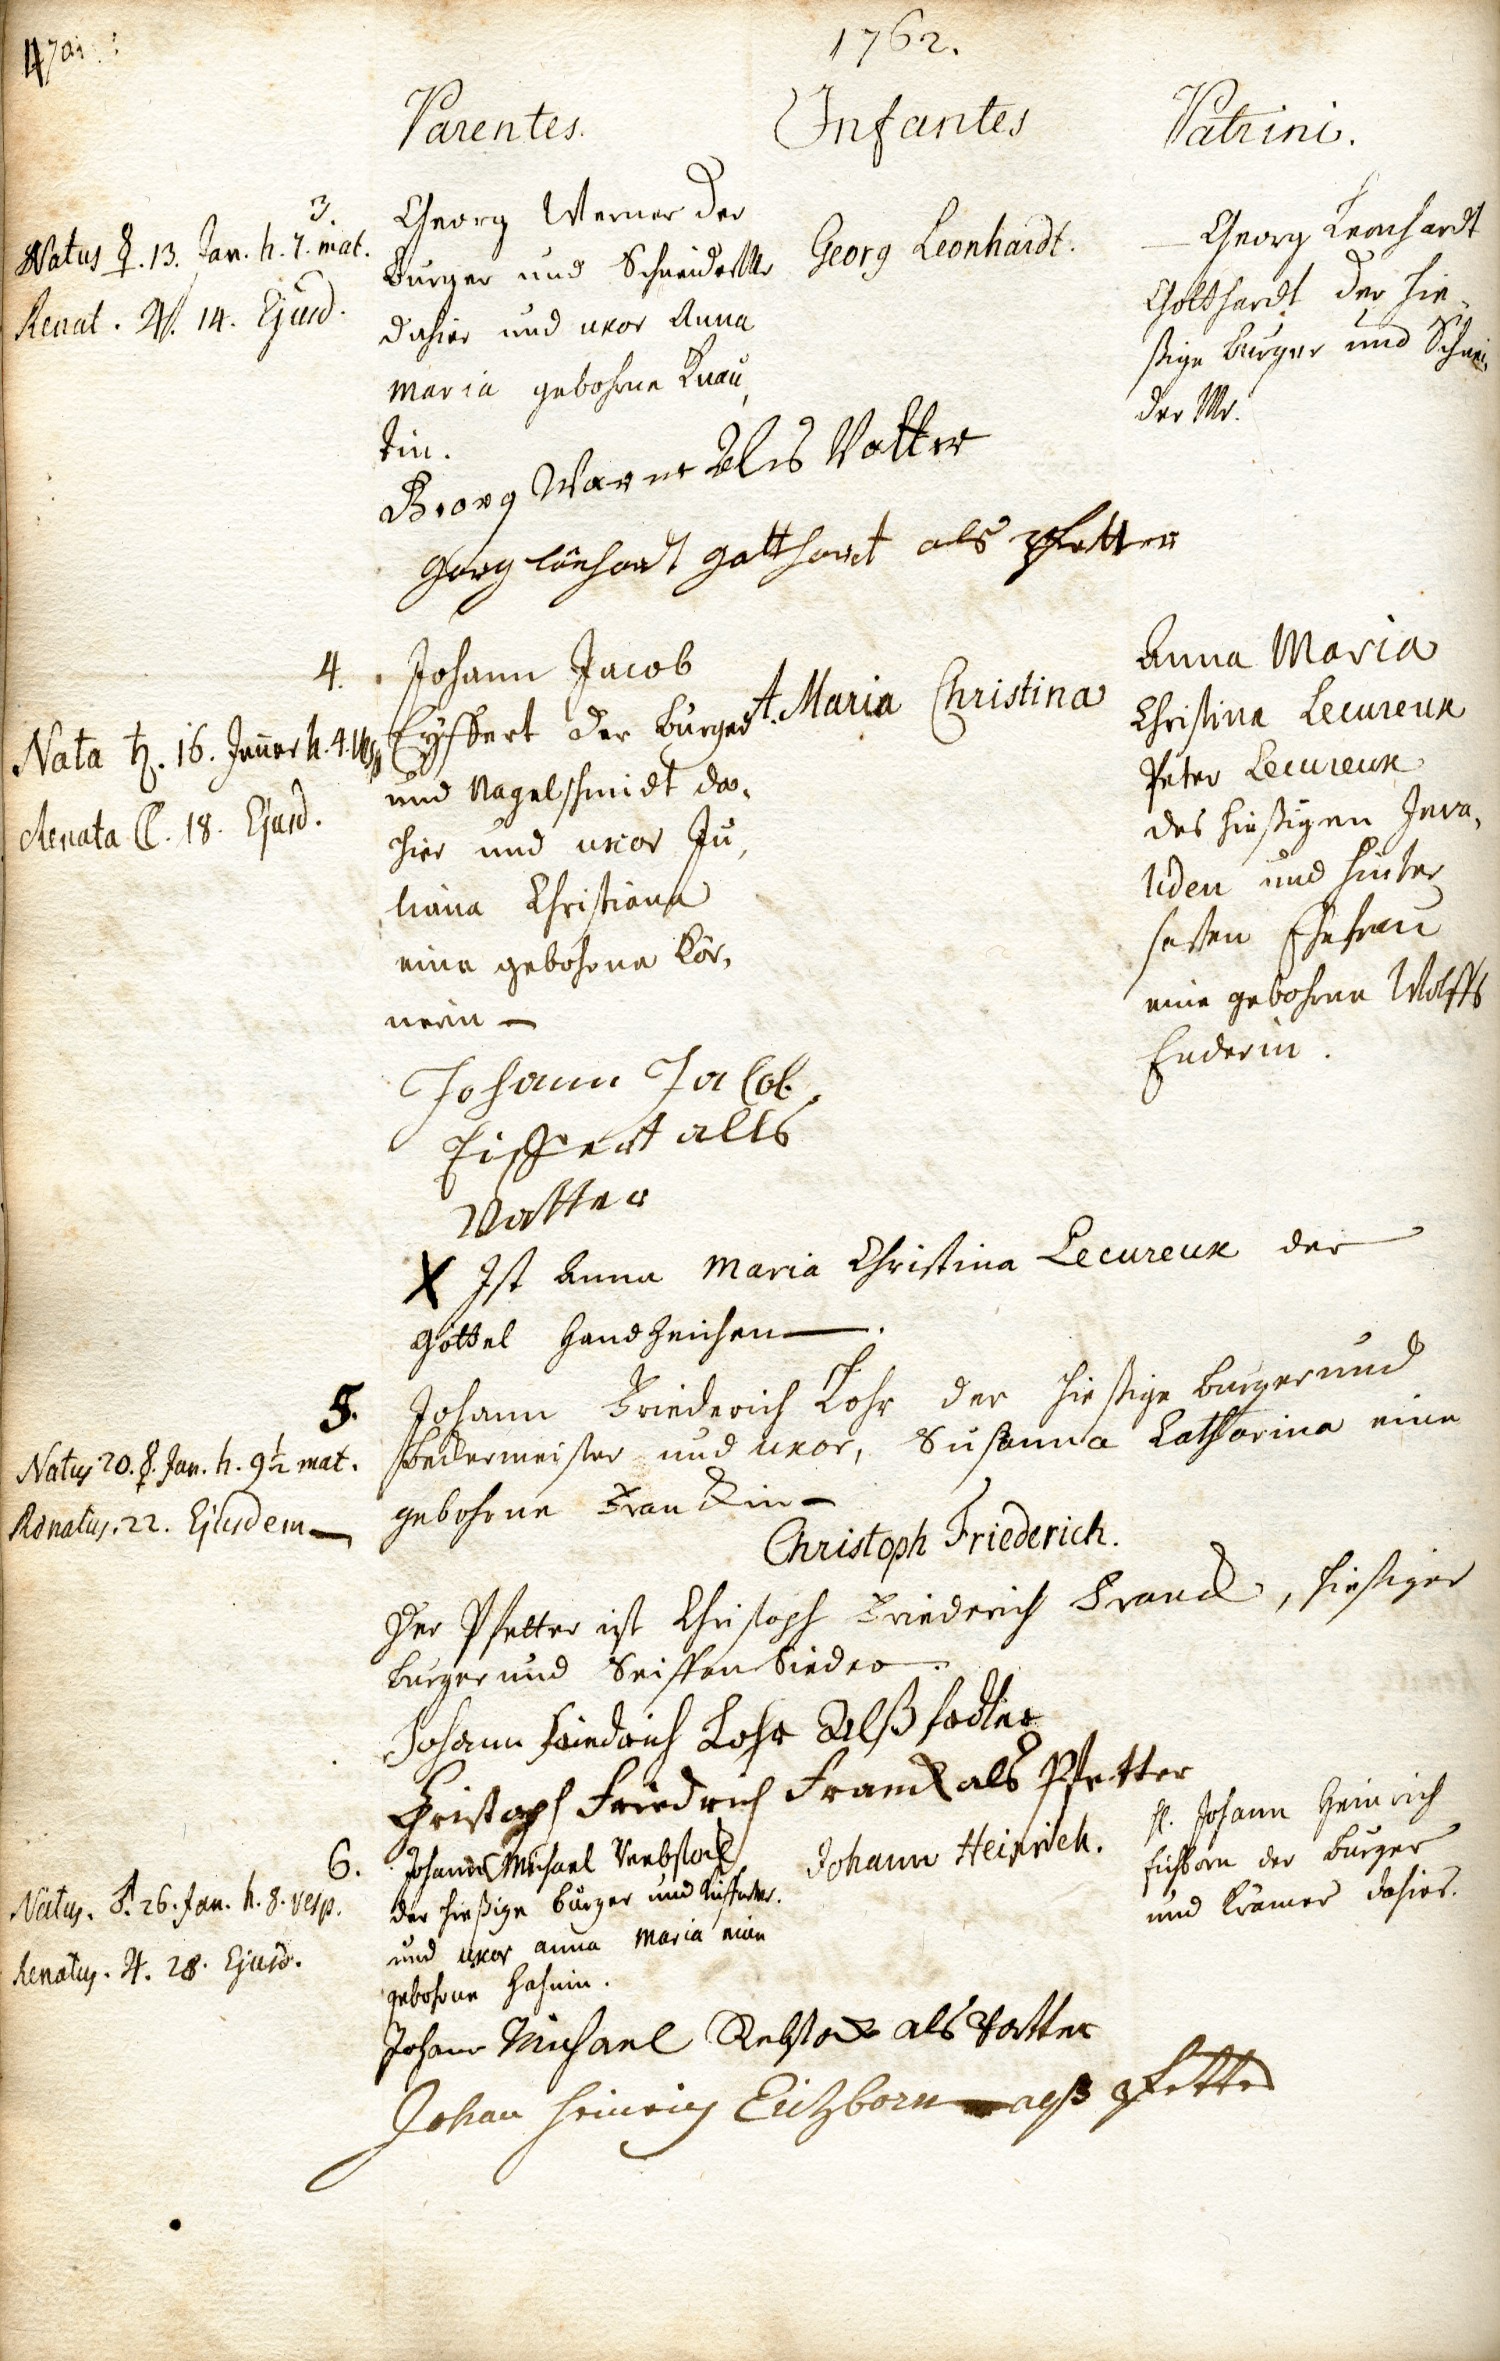 1762.
Parentes. Infantes Patrini.
3.
Natus ☿. 13. Jan. h. 7. mat.
Renat. ♃. 14. Ejusd.
Georg Werner der
Burger und Schneider Mr
dahier und uxor Anna
Maria gebohrne Knau,
tin.
Georg Leonhardt.
Georg Leonhardt
Gotthardt der hie-
ßige Burger und Schnei,
der Mr.
Georg Warner Als Vatter
Gorg Lönhardt Gotthardt als Pfetter
4.
Nata ♄. 16. Jenner h. 4.
Renata ☾. 18. Ejusd.
Johann Jacob
Eyffert der Burger
und Nagelschmidt da,
hier und uxor Ju,
liana Christiana
eine gebohrne Kör,
nerin —
A. Maria Christina
Anna Maria
Christina Lecureux
Peter Lecureux
des hießigen Inva,
liden und Hinter
saßen Ehefrau
eine gebohrne Wolffs
Enderin.
Johann Jacob
Eiffert alls
Vatter
X Ist Anna Maria Christina Lecureux der
Göttel Handzeichen —.
5.
Natus 20. ☿. Jan. h. 9½ mat.
Renatus. 22. Ejusdem —
Johann Friederich Lohr der hießige Burger und
Bedermeister und uxor, Susanna Catharina eine
gebohrne Franckin —
Christoph Friederich.
Der Pfetter ist Christoph Friederich Franck, hießiger
Burger und Seiffen Sieder.
Johann Friedrich Lohr Alß fadter
Christoph Friedrich Franck als Pfetter
6.
Natus. ♂. 26. Jan. h. 8. vesp.
Renatus. ♃. 28. Ejusd.
Johann Michael Reebstock
der hießige Burger und Küffer Mr.
und uxor Anna Maria eine
gebohrne Hahnin.
Johann Heinrich.
H. Johann Heinrich
Eichborn der Burger
und Krämer dahier.
Johann Michael Rebstock als Vatter
Johan Heinrich Eichborn alß Pfetter